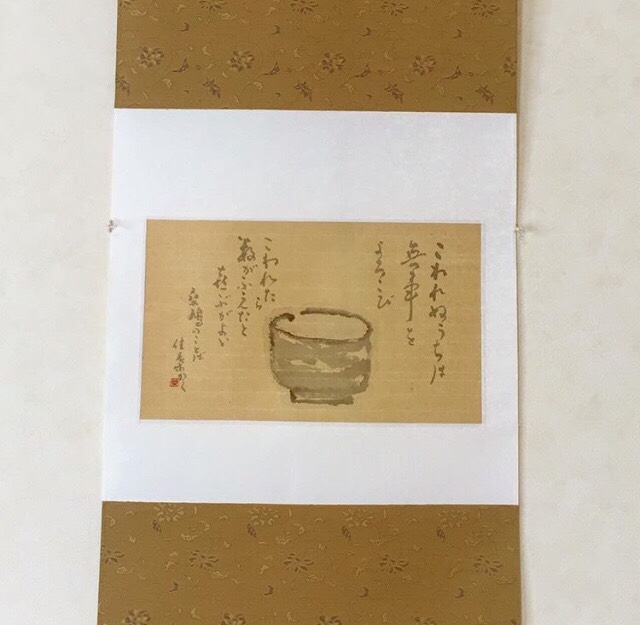 こわれぬうちは
無事を
よろこび
こわれたら
数がふえたと
喜ぶがよい
のことば
かく